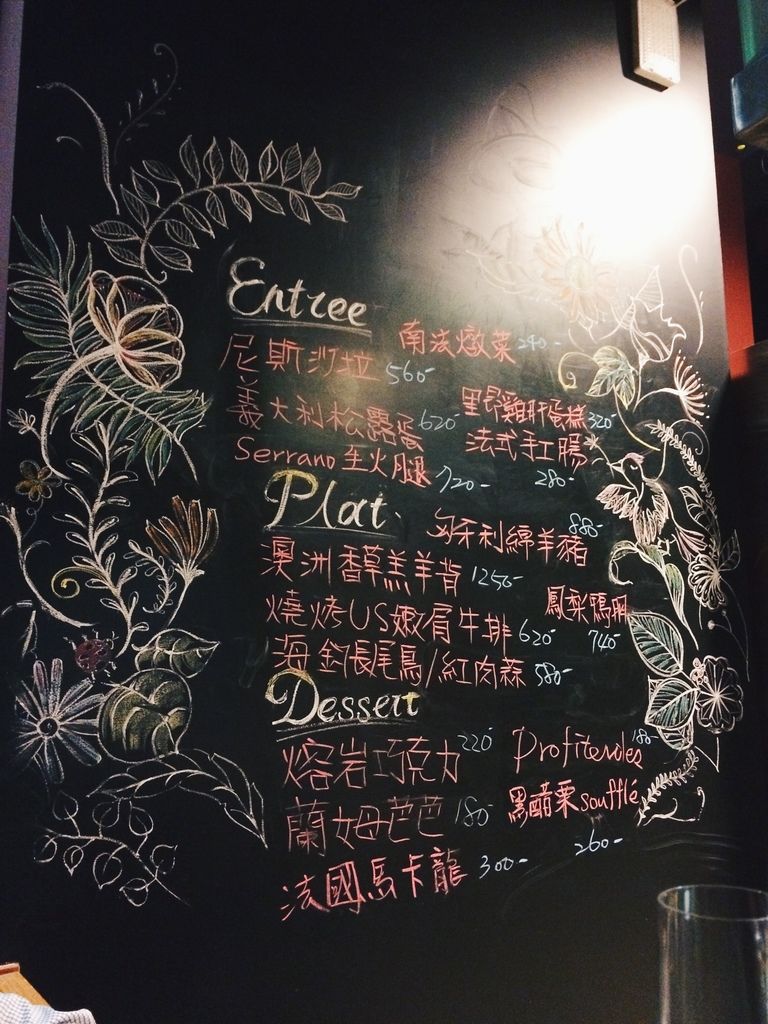 Entree
尼斯沙拉 560-
南法燉菜 240-
義大利松露蛋 620-
野雞肝蛋糕 320-
Serrano 生火腿 720-
法式手工腸 280-
Plat
匈牙利綿羊豬 880-
澳洲香草羔羊背 1250-
鳳梨鴨胸 740-
燒烤US嫩肩牛排 620-
海釣長尾鳥/紅肉蒜 580-
Dessert
熔岩巧克力 220-
Profiteroles 180-
蘭姆芭芭 180-
黑醋栗soufflé 260-
法國馬卡龍 300-